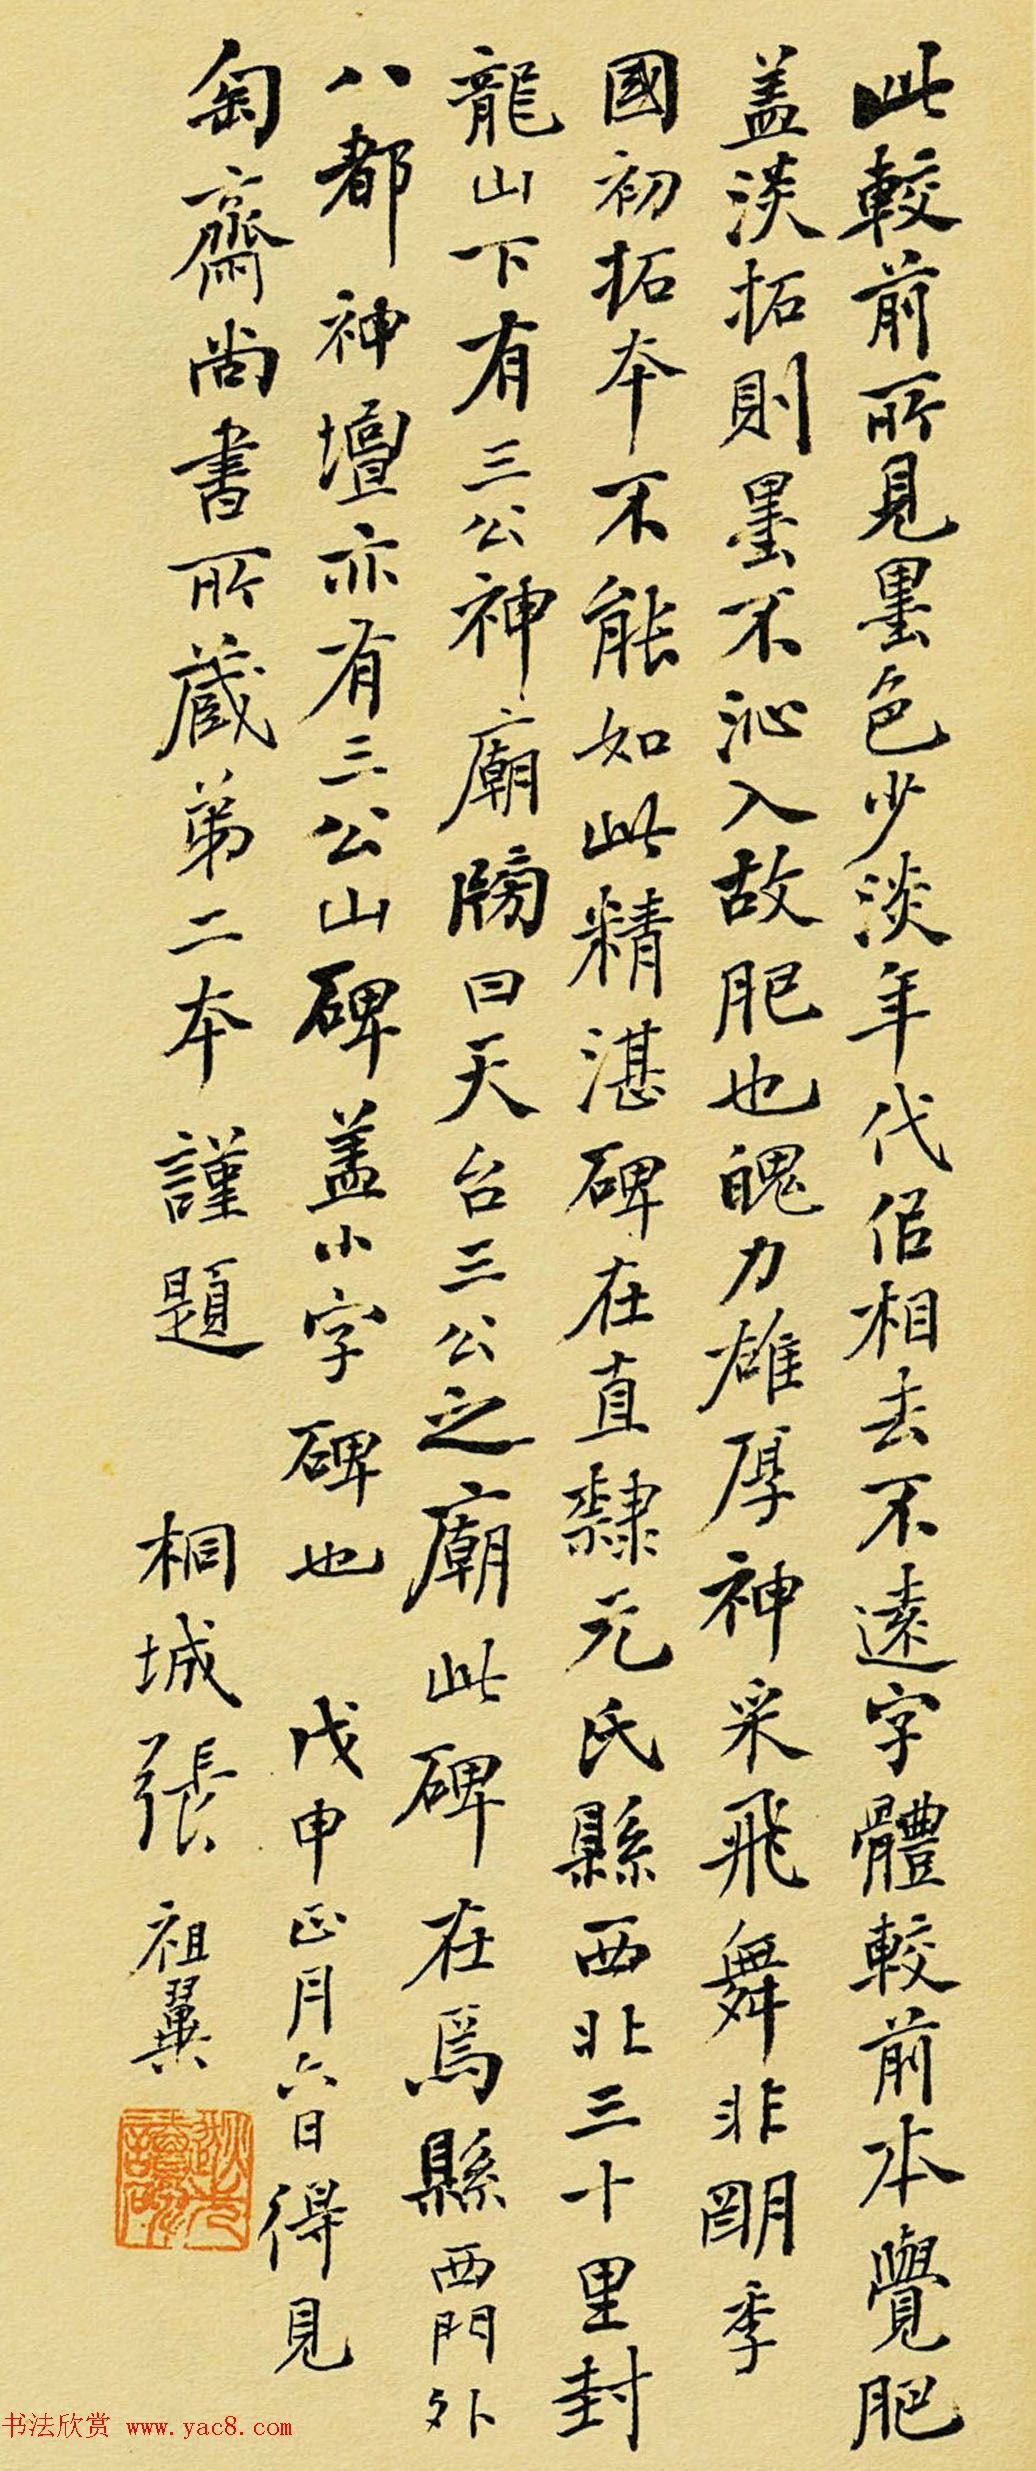 此較前所見墨色少淡年代侣相去不遠字體較前本覺肥
盖淡拓則墨不沁入故肥也魄力雄厚神采飛舞非朙季
國初拓本不能如此精湛碑在直隸元氏縣西北三十里封
龍山下有三公神廟牓曰天台三公之廟此碑在焉縣西門外
八都神壇亦有三公山碑盖小字碑也 戊申正月六日得見
匋齋尚書所蔵弟二本謹題 桐城張祖翼
书法欣赏 www.yac8.com